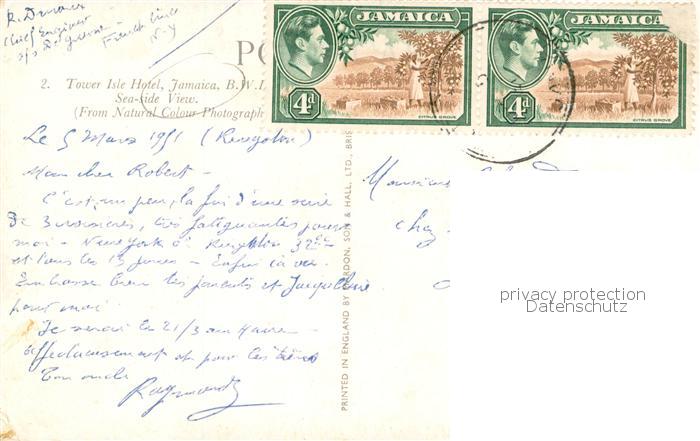 Chief Engineer
French Line
N-Y
PO
JAMAICA
JAMAICA
4d
4d
CITRUS GROVE
CITRUS GROVE
2. Tower Isle Hotel, Jamaica, B.W.I.
Sea-side View.
(From Natural Colour Photograph
Le 5 Mars 1951
Mon cher Robert -
C'est, un peu, la fin d'une série
de 3 croisières, très fatiguantes pour
moi - New York à Kingston
et tous les 13 jours - Enfin ça va.
Embrasse bien tes parents et Jacqueline
pour moi
Je serai le 21/3 au Havre
Affectueusement et pour les
Ton oncle
Raymond
Monsieur
chez
PRINTED IN ENGLAND BY MARDON, SON & HALL, LTD., BRIS
privacy protection
Datenschutz